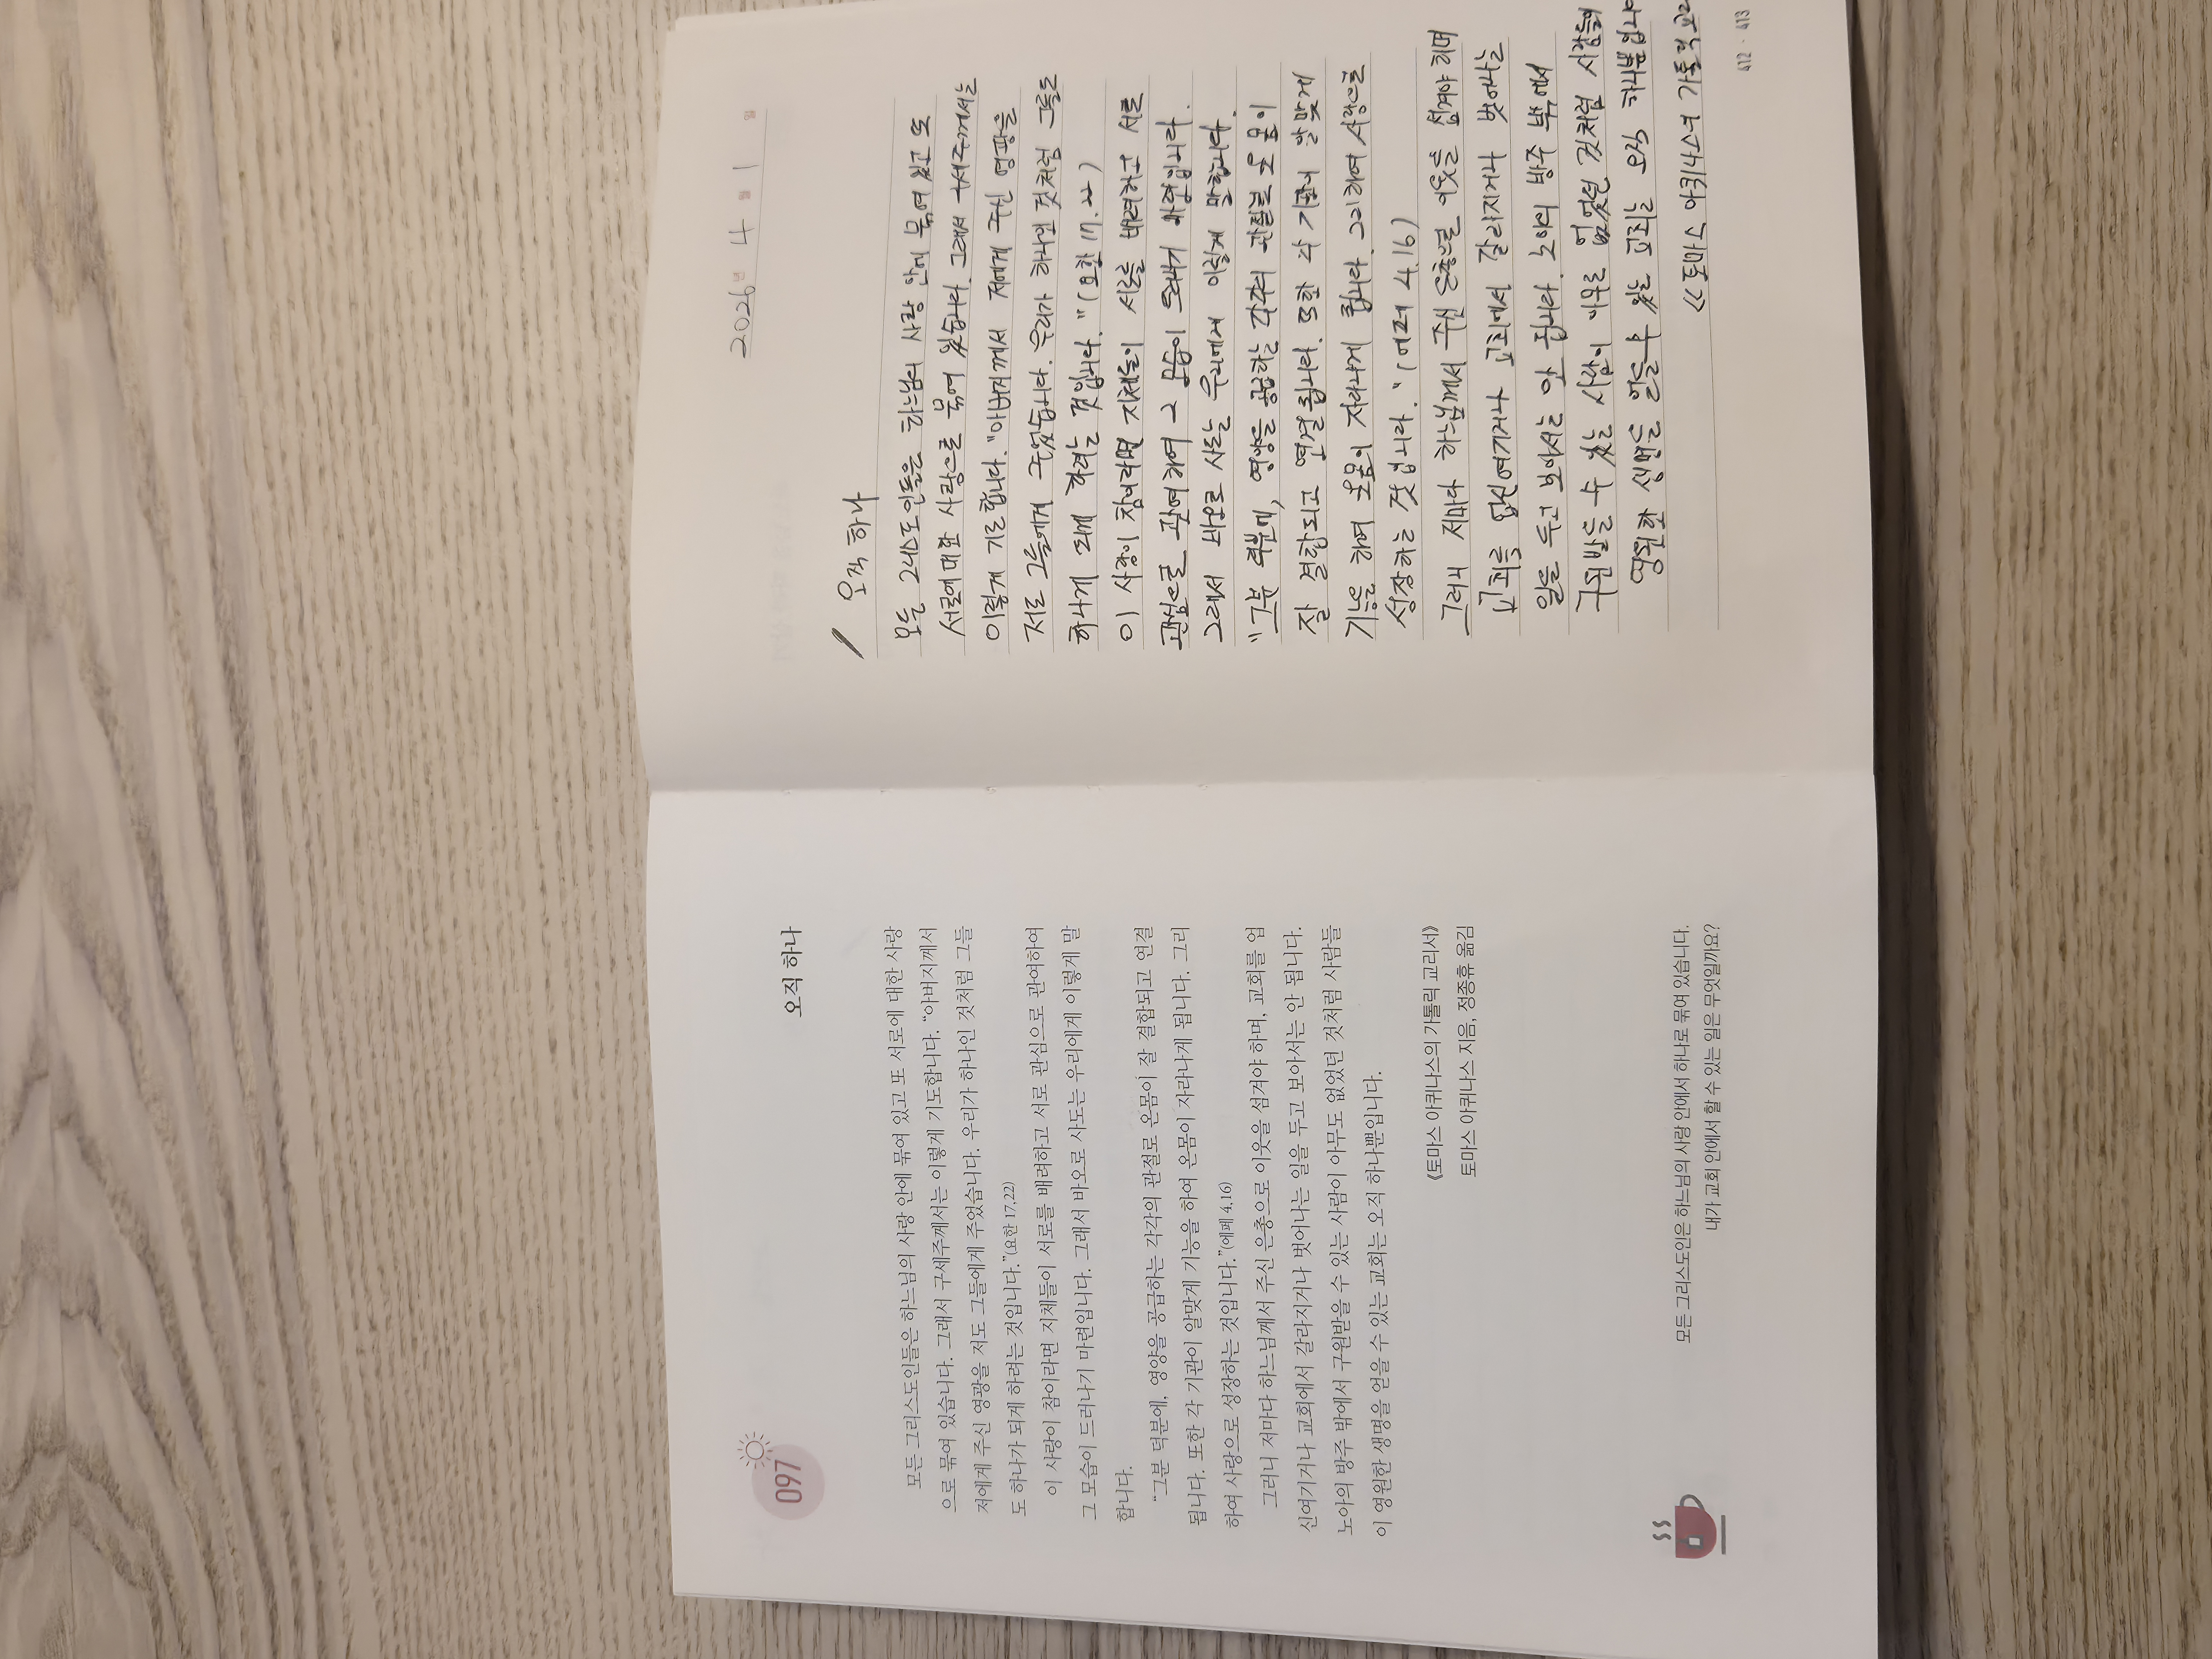 097
오직 하나
모든 그리스도인들은 하느님의 사랑 안에 묶여 있고 또 서로에 대한 사랑
으로 묶여 있습니다. 그래서 구세주께서는 이렇게 기도합니다. “아버지께서
저에게 주신 영광을 저도 그들에게 주었습니다. 우리가 하나인 것처럼 그들
도 하나가 되게 하려는 것입니다.”(요한 17,22)
이 사랑이 참이라면 지체들이 서로를 배려하고 서로 관심으로 관여하여
그 모습이 드러나기 마련입니다. 그래서 바오로 사도는 우리에게 이렇게 말
합니다.
“그분 덕분에, 영양을 공급하는 각각의 관절로 온몸이 잘 결합되고 연결
됩니다. 또한 각 기관이 알맞게 기능을 하여 온몸이 자라나게 됩니다. 그리
하여 사랑으로 성장하는 것입니다.”(에페 4,16)
그러니 저마다 하느님께서 주신 은총으로 이웃을 섬겨야 하며, 교회를 업
신여기거나 교회에서 갈라지거나 벗어나는 일을 두고 보아서는 안 됩니다.
노아의 방주 밖에서 구원받을 수 있는 사람이 아무도 없었던 것처럼 사람들
이 영원한 생명을 얻을 수 있는 교회는 오직 하나뿐입니다.
《토마스 아퀴나스의 가톨릭 교리서》
토마스 아퀴나스 지음, 정종휴 옮김
모든 그리스도인은 하느님의 사랑 안에서 하나로 묶여 있습니다.
내가 교회 안에서 할 수 있는 일은 무엇일까요?
2026년 4월 1일
오직 하나
모든 그리스도인들은 하느님의 사랑 안에 묶여 있고 또
서로에 대한 사랑으로 묶여 있습니다. 그래서 구세주께서는
이렇게 기도합니다. “아버지께서 저에게 주신 영광을
저도 그들에게 주었습니다. 우리가 하나인 것처럼 그들도
하나가 되게 하려는 것입니다.” (요한 17.22)
이 사랑이 참이라면 지체들이 서로를 배려하고 서로
관심으로 관여하여 그 모습이 드러나기 마련입니다.
그래서 바오로 사도는 우리에게 이렇게 말합니다.
“그분 덕분에, 영양을 공급하는 각각의 관절로 온몸이
잘 결합되고 연결됩니다. 또한 각 기관이 알맞게
기능을 하여 온몸이 자라나게 됩니다. 그리하여 사랑으로
성장하는 것입니다.” (에페 4.16)
그러니 저마다 하느님께서 주신 은총으로 이웃을 섬겨야 하며
교회를 업신여기거나 교회에서 갈라지거나 벗어나는
일을 두고 보아서는 안 됩니다. 노아의 방주 밖에서
구원받을 수 있는 사람이 아무도 없었던 것처럼 사람들이
영원한 생명을 얻을 수 있는 교회는 오직 하나뿐입니다
《토마스 아퀴나스의 가톨릭 교리
412 · 413